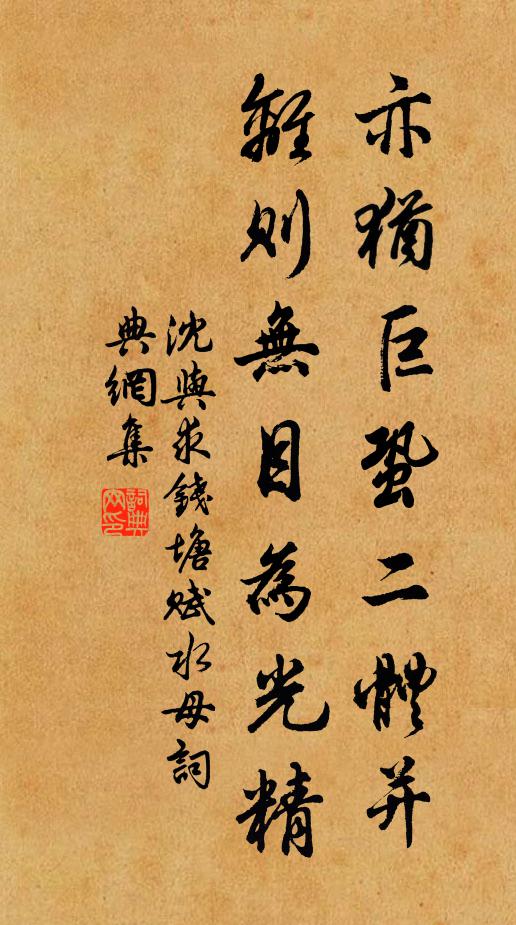 亦猶巨蛩二體并
離則無目為光精
沈與求錢塘賦水母詞
典網集
詞典
网印